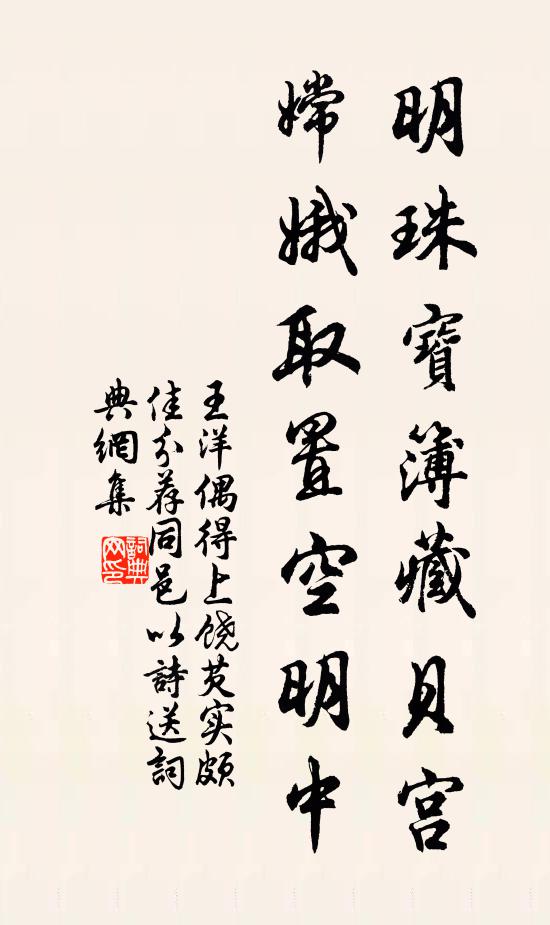 明珠寶簿藏貝宮
嫦娥取置空明中
王洋偶得上饒芡实頗
佳分荐同邑以詩送詞
典網集
詞典
网印